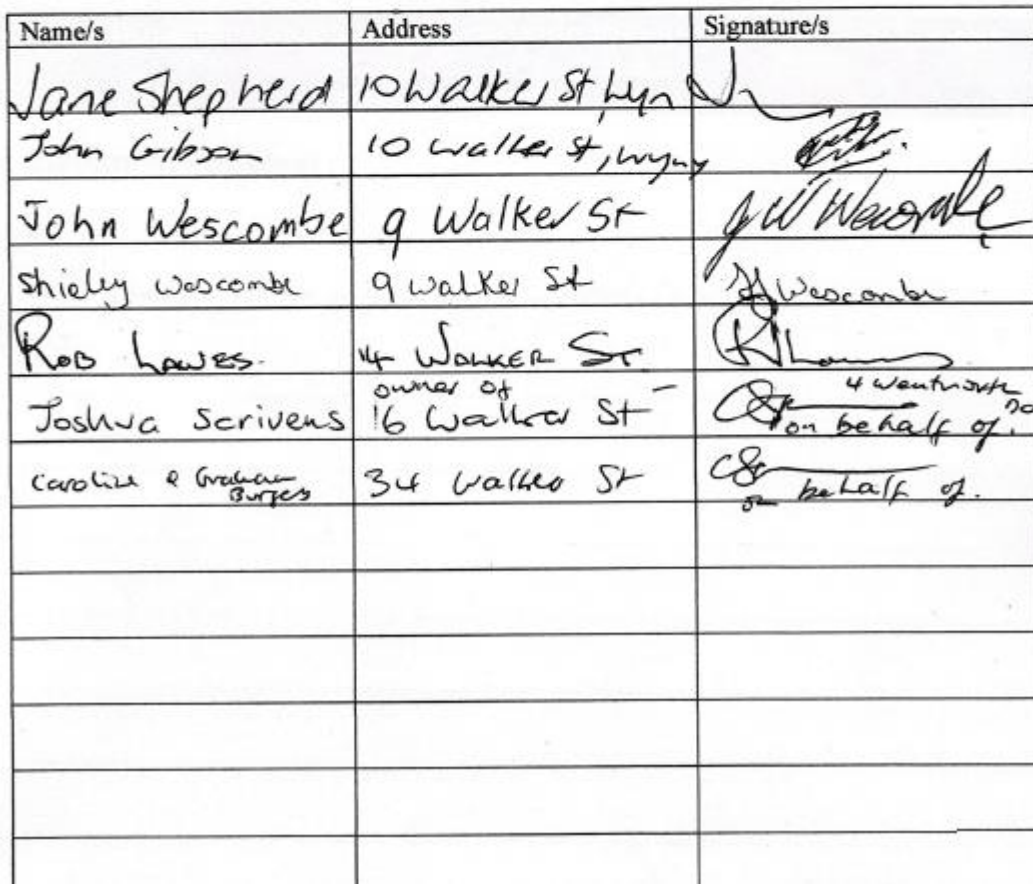 Name/s Address Signature/s
Jane Shepherd 10 Walker St Wyn
John Gibson 10 Walker St, Wyny
John Wescombe 9 Walker St JW Wescombe
Shirley Wescombe 9 Walker St SJ Wescombe
ROB LAWES. 14 WALKER ST
owner of 4 Wentworth
Joshua Scrivens 16 Walker St on behalf of.
Caroline & Graham
Burgess 34 Walker St
on behalf of.